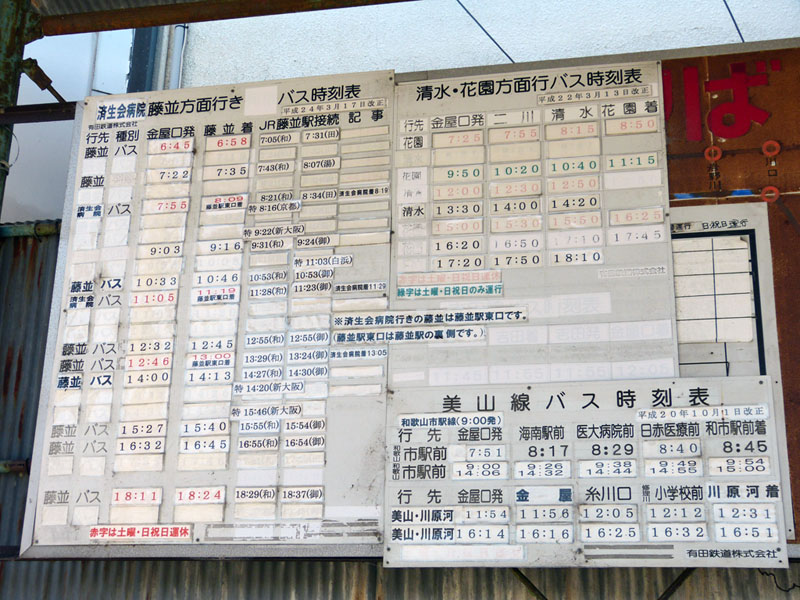 済生会病院 藤並方面行き バス時刻表
平成24年3月17日改正
有田鉄道株式会社
行先 種別 金屋口発 藤並着 JR藤並駅接続 記事
藤並 バス 6:45 6:58 7:05(和) 7:31(田)
藤並 7:22 7:35 7:43(和) 8:07(湯)
済生会病院 バス 7:55 8:09 藤並駅東口着 8:21(和) 8:34(田) 済生会病院着8:19
特 8:16(京都)
特 9:22(新大阪)
9:03 9:16 9:31(和) 9:24(御)
特 11:03(白浜)
藤並 バス 10:33 10:46 10:53(和) 10:53(御)
済生会病院 バス 11:05 11:19 藤並駅東口着 11:28(和) 11:23(御) 済生会病院着11:29
藤並 バス 12:32 12:45 12:55(和) 12:55(御)
藤並 バス 12:46 13:00 藤並駅東口着 13:29(和) 13:24(御) 済生会病院着13:05
藤並 バス 14:00 14:13 14:27(和) 14:30(御)
特 14:20(新大阪)
特 15:46(新大阪)
藤並 バス 15:27 15:40 15:55(和) 15:54(御)
藤並 バス 16:32 16:45 16:55(和) 16:54(御)
藤並 バス 18:11 18:24 18:29(和) 18:37(御)
赤字は土曜・日祝日運休
清水・花園方面行バス時刻表
平成22年3月13日改正
行先 金屋口発 二川 清水 花園着
花園 7:25 7:55 8:15 8:50
花園 9:50 10:20 10:40 11:15
清水 12:00 12:30 12:50
清水 13:30 14:00 14:20
15:00 15:30 15:50 16:25
16:20 16:50 17:10 17:45
17:20 17:50 18:10
赤字は土曜・日祝日運休
緑字は土曜・日祝日のみ運行
※済生会病院行きの藤並は藤並駅東口です。
(藤並駅東口は藤並駅の裏側です。)
運行 日祝日運行
ば
美山線バス時刻表
平成20年10月1日改正
和歌山市駅線(9:00発)
行先 金屋口発 海南駅前 医大病院前 日赤医療前 和市駅前着
和歌山市駅前 7:51 8:17 8:29 8:40 8:45
和歌山市駅前 9:00 14:06 9:26 14:32 9:38 14:44 9:49 14:55 9:54 15:00
行先 金屋口発 金屋 糸川口 修理川小学校前 川原河着
美山・川原河 11:54 11:56 12:05 12:12 12:31
美山・川原河 16:14 16:16 16:25 16:32 16:51
有田鉄道株式会社